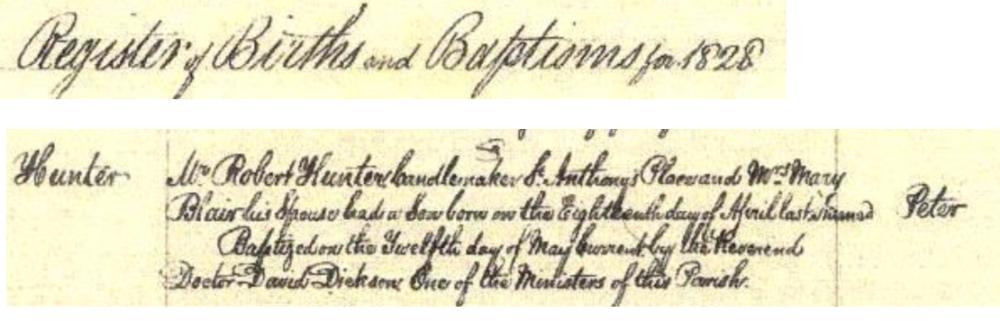 Register of Births and Baptisms for 1828
Hunter
Mr Robert Hunter Candlemaker St Anthony's Place and Mrs Mary
Blair his Spouse had a Son born on the Eighteenth day of April last named
Peter
Baptized on the Twelfth day of May Current by the Reverend
Doctor David Dickson One of the Ministers of this Parish.